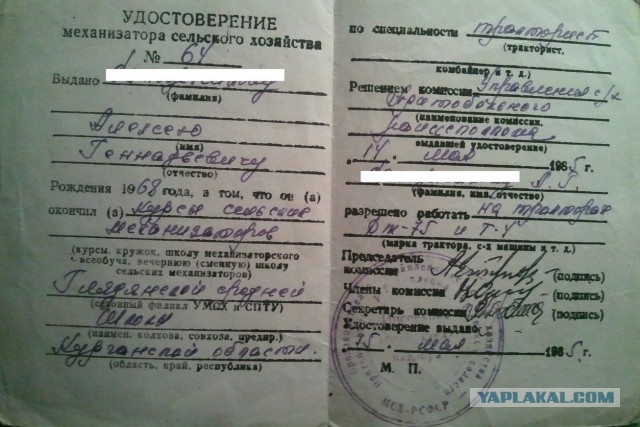 УДОСТОВЕРЕНИЕ
механизатора сельского хозяйства
№ 64
Выдано
(фамилия)
Алексею
(имя)
Геннадьевичу
(отчество)
Рождения 1968 года, в том, что он (а)
окончил (а) курсы сельских
механизаторов
(курсы, кружок, школу механизаторского
всеобуча, вечернюю (сменную) школу
сельских механизаторов)
Глядянской средней
филиал УМСХ и СПТУ)
школы
(наимен. колхоза, совхоза, предпр.)
Курганской области.
(область, край, республика)
по специальности тракторист
(тракторист,
комбайнер и т. д.)
Решением комиссии Управления с/х
Притобольного
(наименование комиссии,
райисполкома
выдавшей удостоверение)
14 . мая 1985 г.
А. Г.
(фамилия, имя, отчество)
разрешено работать на тракторах
Дт-75 и т-4
(марка трактора, с-х машины и т. д.)
Председатель
комиссии (подпись)
Члены комиссии (подпись)
Секретарь комиссии (подпись)
Удостоверение выдано
15. мая 1985 г.
М. П.
МСХ-РСФСР
YAPLAKAL.COM